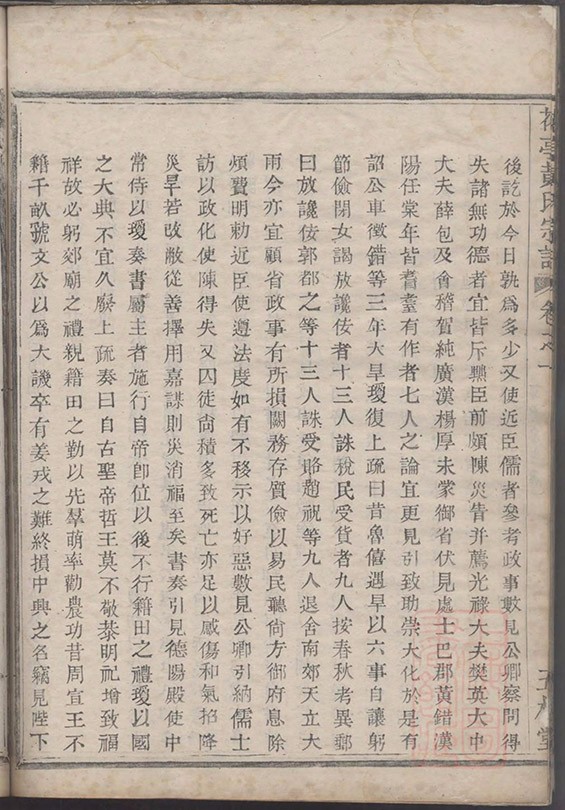 後訖於今日孰爲多少又使近臣儒者參考政事數見公卿察問得
失諸無功德者宜皆斥黜臣前頗陳災眚并薦光祿大夫樊英大中
大夫薛包及會稽賀純廣漢楊厚未蒙御省伏見處士巴郡黃錯漢
陽任棠年皆耆耋有作者七人之論宜更見引致助崇大化於是有
詔公車徵錯等三年大旱瓊復上疏曰昔魯僖遇旱以六事自讓躬
節儉閉女謁放讒佞者十三人誅稅民受貨者九人按春秋考異郵
曰放讒佞郭都之等十三人誅受賂趙祝等九人退舍南郊天立大
雨今亦宜顧省政事有所損闕務存質儉以易民聽尙方御府息除
煩費明勅近臣使遵法度如有不移示以好惡數見公卿引納儒士
訪以政化使陳得失又囚徒尙積多致死亡亦足以感傷和氣招降
災旱若改敝從善擇用嘉謀則災消福至矣書奏引見德陽殿使中
常侍以瓊奏書屬主者施行自帝卽位以後不行籍田之禮瓊以國
之大典不宜久廢上疏奏曰自古聖帝哲王莫不敬恭明祀增致福
祥故必躬郊廟之禮親籍田之勤以先羣萌率勸農功昔周宣王不
籍千畝虢文公以爲大譏卒有姜戎之難終損中興之名竊見陛下